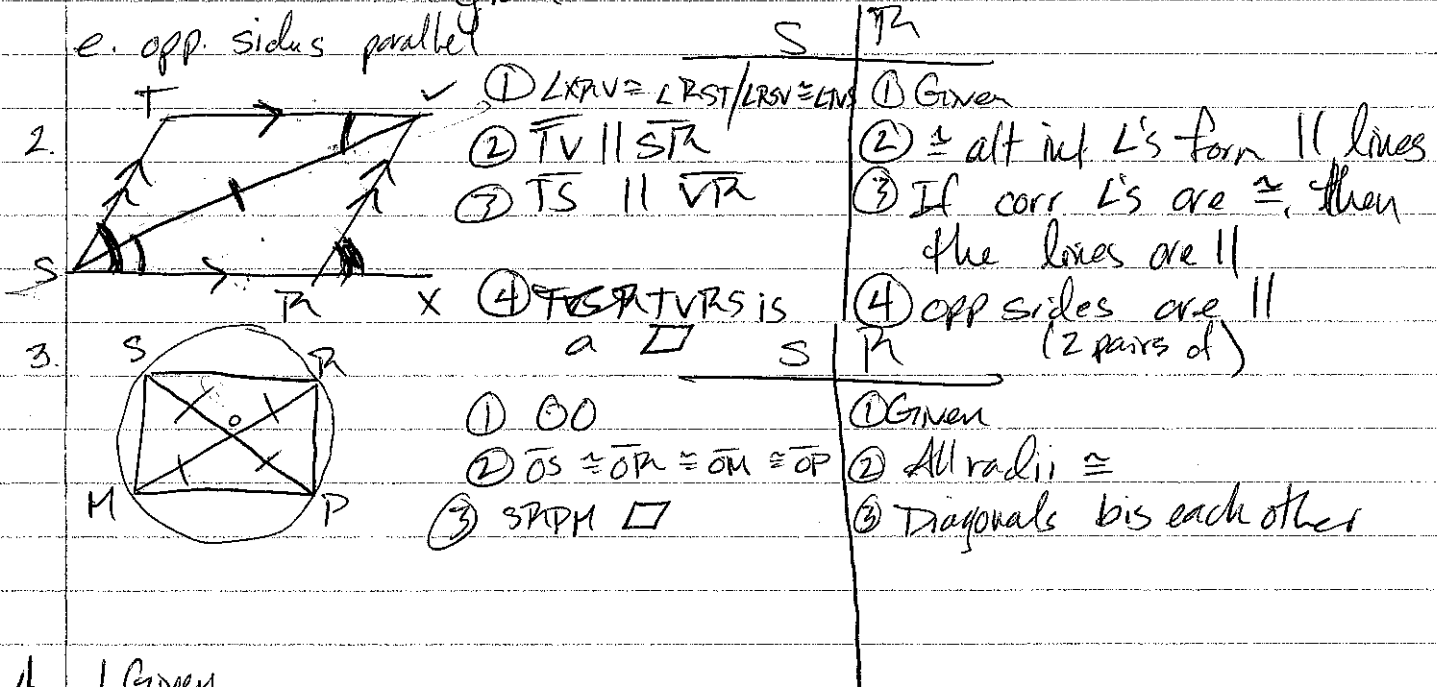 e. opp. sides parallel
S | R
2.
T V S R X
① ∠XRV ≅ ∠RST/∠RSV ≅ ∠TVS ① Given
② TV || SR ② ≅ alt int ∠'s form || lines
③ TS || VR ③ If corr ∠'s are ≅, then
the lines are ||
④ TVRS is ④ opp sides are ||
a ▱ (2 pairs of)
3.
S R O M P
S | R
① ⊙O ① Given
② OS ≅ OR ≅ OM ≅ OP ② All radii ≅
③ SRPM ▱ ③ Diagonals bis each other
1 Given